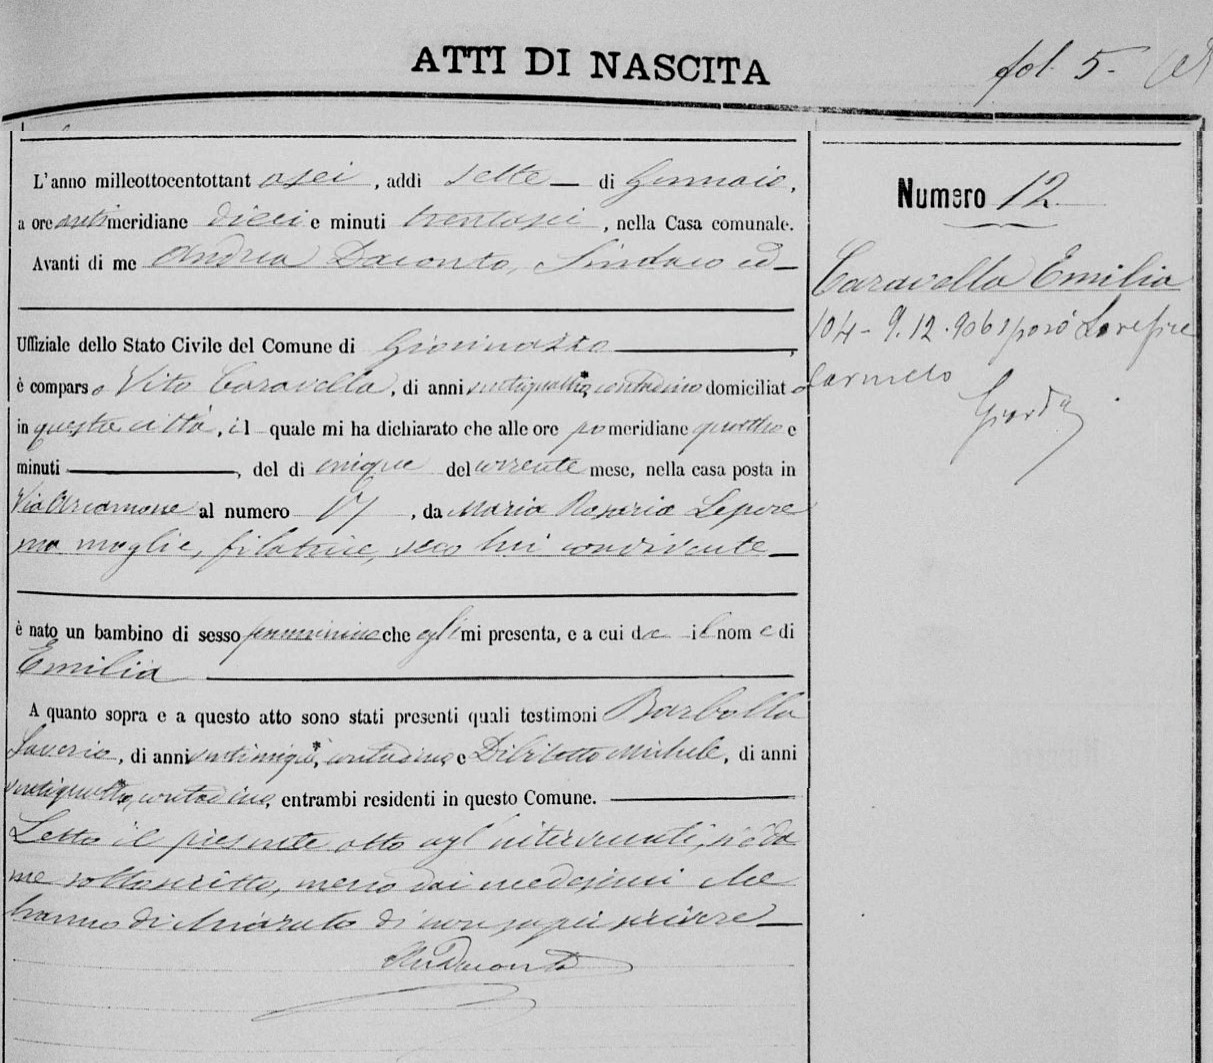 ATTI DI NASCITA
fol. 5.
L'anno milleottocentottantasei, addi sette di Gennaio,
a ore antimeridiane dieci e minuti trentasei, nella Casa comunale.
Avanti di me Andrea Daconto, Sindaco ed
Uffiziale dello Stato Civile del Comune di Giovinazzo,
è comparso Vito Caravella, di anni ventiquattro, contadino domiciliato
in questa città, il quale mi ha dichiarato che alle ore pomeridiane quattro e
minuti, del dì cinque del corrente mese, nella casa posta in
Via al numero, da Maria Rosaria Lepore
sua moglie, filatrice, seco lui convivente
è nato un bambino di sesso femminino che egli mi presenta, e a cui da il nome di
Emilia
A quanto sopra e a questo atto sono stati presenti quali testimoni Barbolla
Saverio, di anni, contadino e Michele, di anni
ventiquattro, contadino, entrambi residenti in questo Comune.
Letto il presente atto agl'intervenuti, si è da
me sottoscritto, meno dai medesimi che
hanno dichiarato di non saper scrivere
And Daconto
Numero 12
Caravella Emilia
104 - 9.12.906 sposò
Carmelo